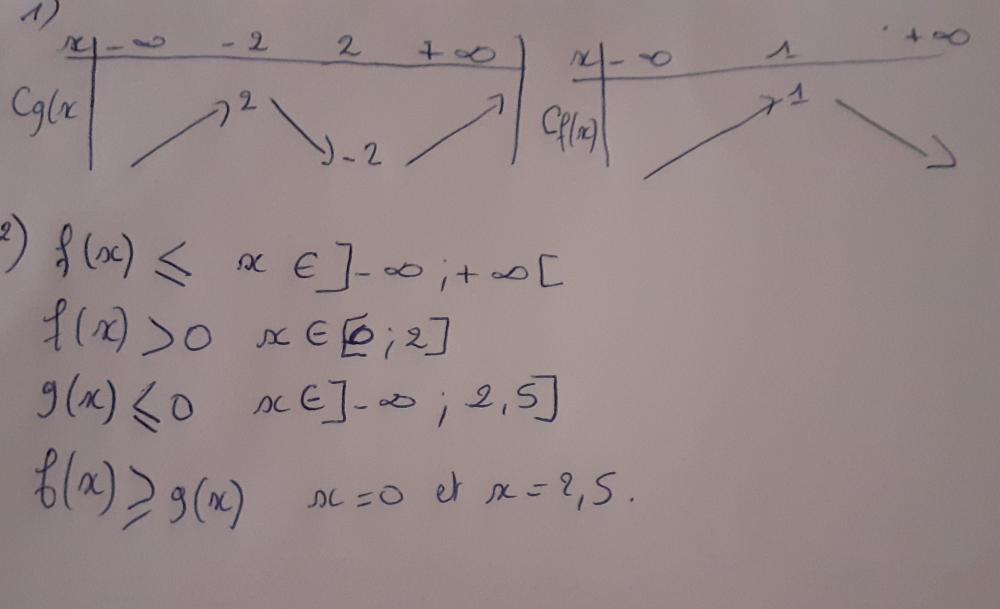 1)
x | -∞ -2 2 +∞ | x | -∞ 1 +∞
Cg(x 2 -2 Cf(x) 1
2) f(x) ≤ x ∈ ]-∞ ; +∞ [
f(x) > 0 x ∈ [0 ; 2]
g(x) ≤ 0 x ∈ ]-∞ ; 2,5]
f(x) ≥ g(x) x = 0 et x = 2,5.